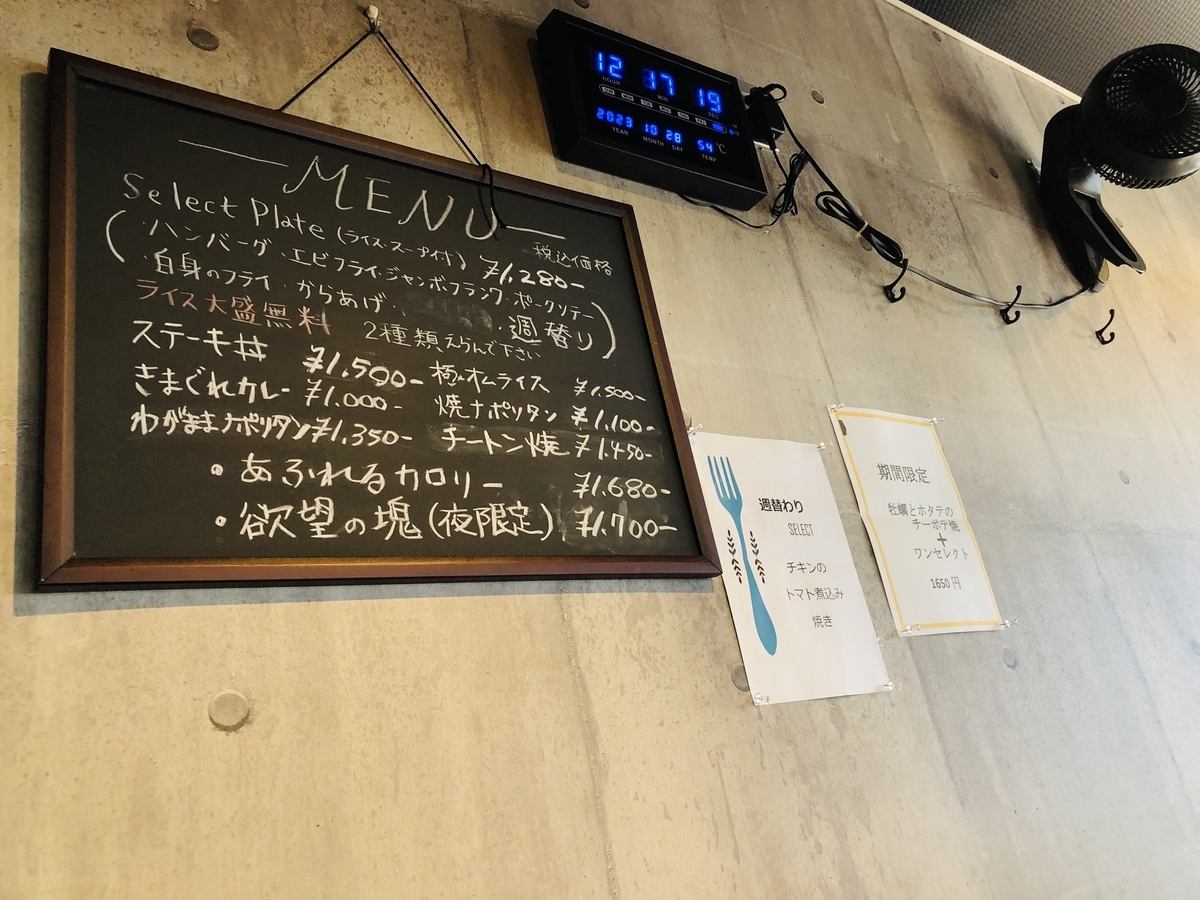 MENU
Select Plate (ライス・スープ付) ¥1,280-
税込価格
(・ハンバーグ・エビフライ・ジャンボフランク・ポークソテー
・白身のフライ・からあげ・週替り)
ライス大盛無料 2種類えらんで下さい
ステーキ丼 ¥1,500-
きまぐれカレー ¥1,000-
わがままナポリタン ¥1,350-
極・オムライス ¥1,500-
焼ナポリタン ¥1,100-
チートン焼 ¥1,450-
・あふれるカロリー ¥1,680-
・欲望の塊(夜限定) ¥1,700-
12 17 19
HOUR MIN SEC
2023 10 28 54 ℃
YEAR MONTH DAY TEMP
週替わり
SELECT
チキンの
トマト煮込み
焼き
期間限定
牡蠣とホタテの
チーポテ焼
+
ワンセレクト
1650 円